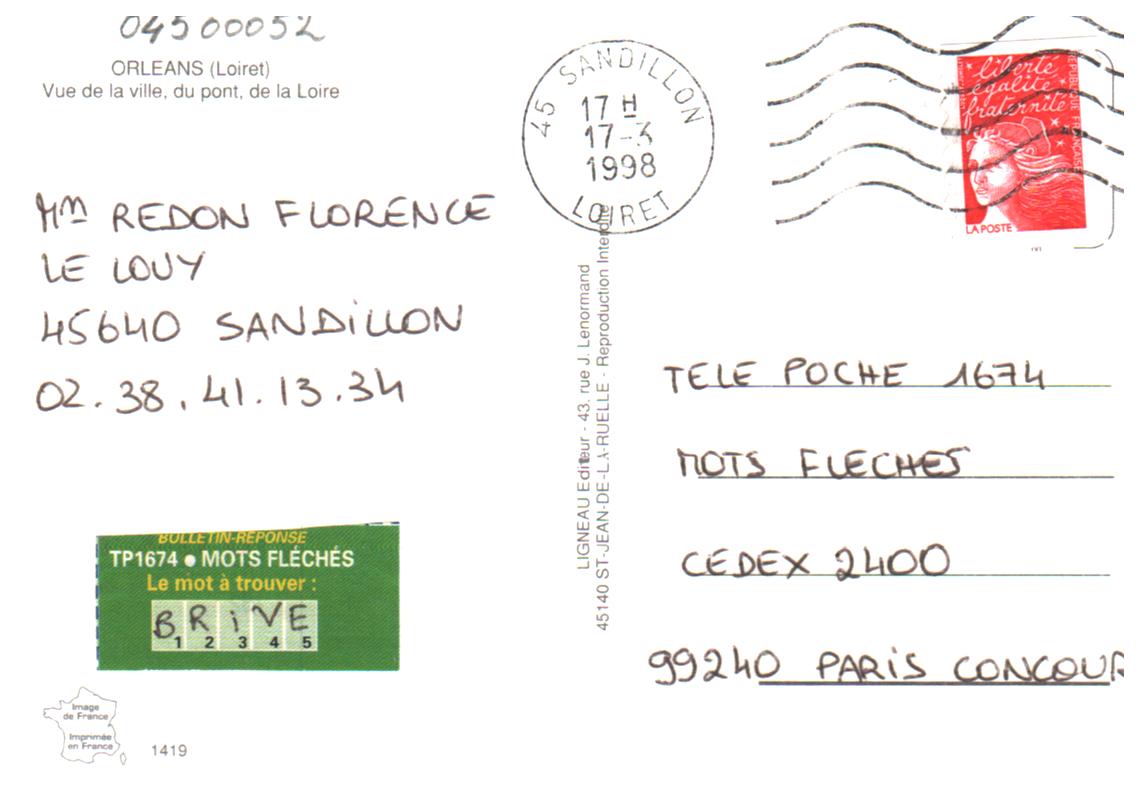 04500052
ORLEANS (Loiret)
Vue de la ville, du pont, de la Loire
45 SANDILLON
17 H
17-3
1998
LOIRET
liberté
égalité
fraternité
RÉPUBLIQUE FRANÇAISE
LA POSTE
Mm REDON FLORENCE
LE LOUY
45640 SANDiLLON
02.38.41.13.34
LIGNEAU Editeur - 43, rue J. Lenormand
45140 ST-JEAN-DE-LA-RUELLE - Reproduction Interdite
TELE POCHE 1674
MOTS FLECHES
CEDEX 2400
99240 PARiS CONCOUR
BULLETIN-RÉPONSE
TP1674 ● MOTS FLÉCHÉS
Le mot à trouver :
BRiVE
1 2 3 4 5
Image
de France
Imprimée
en France
1419